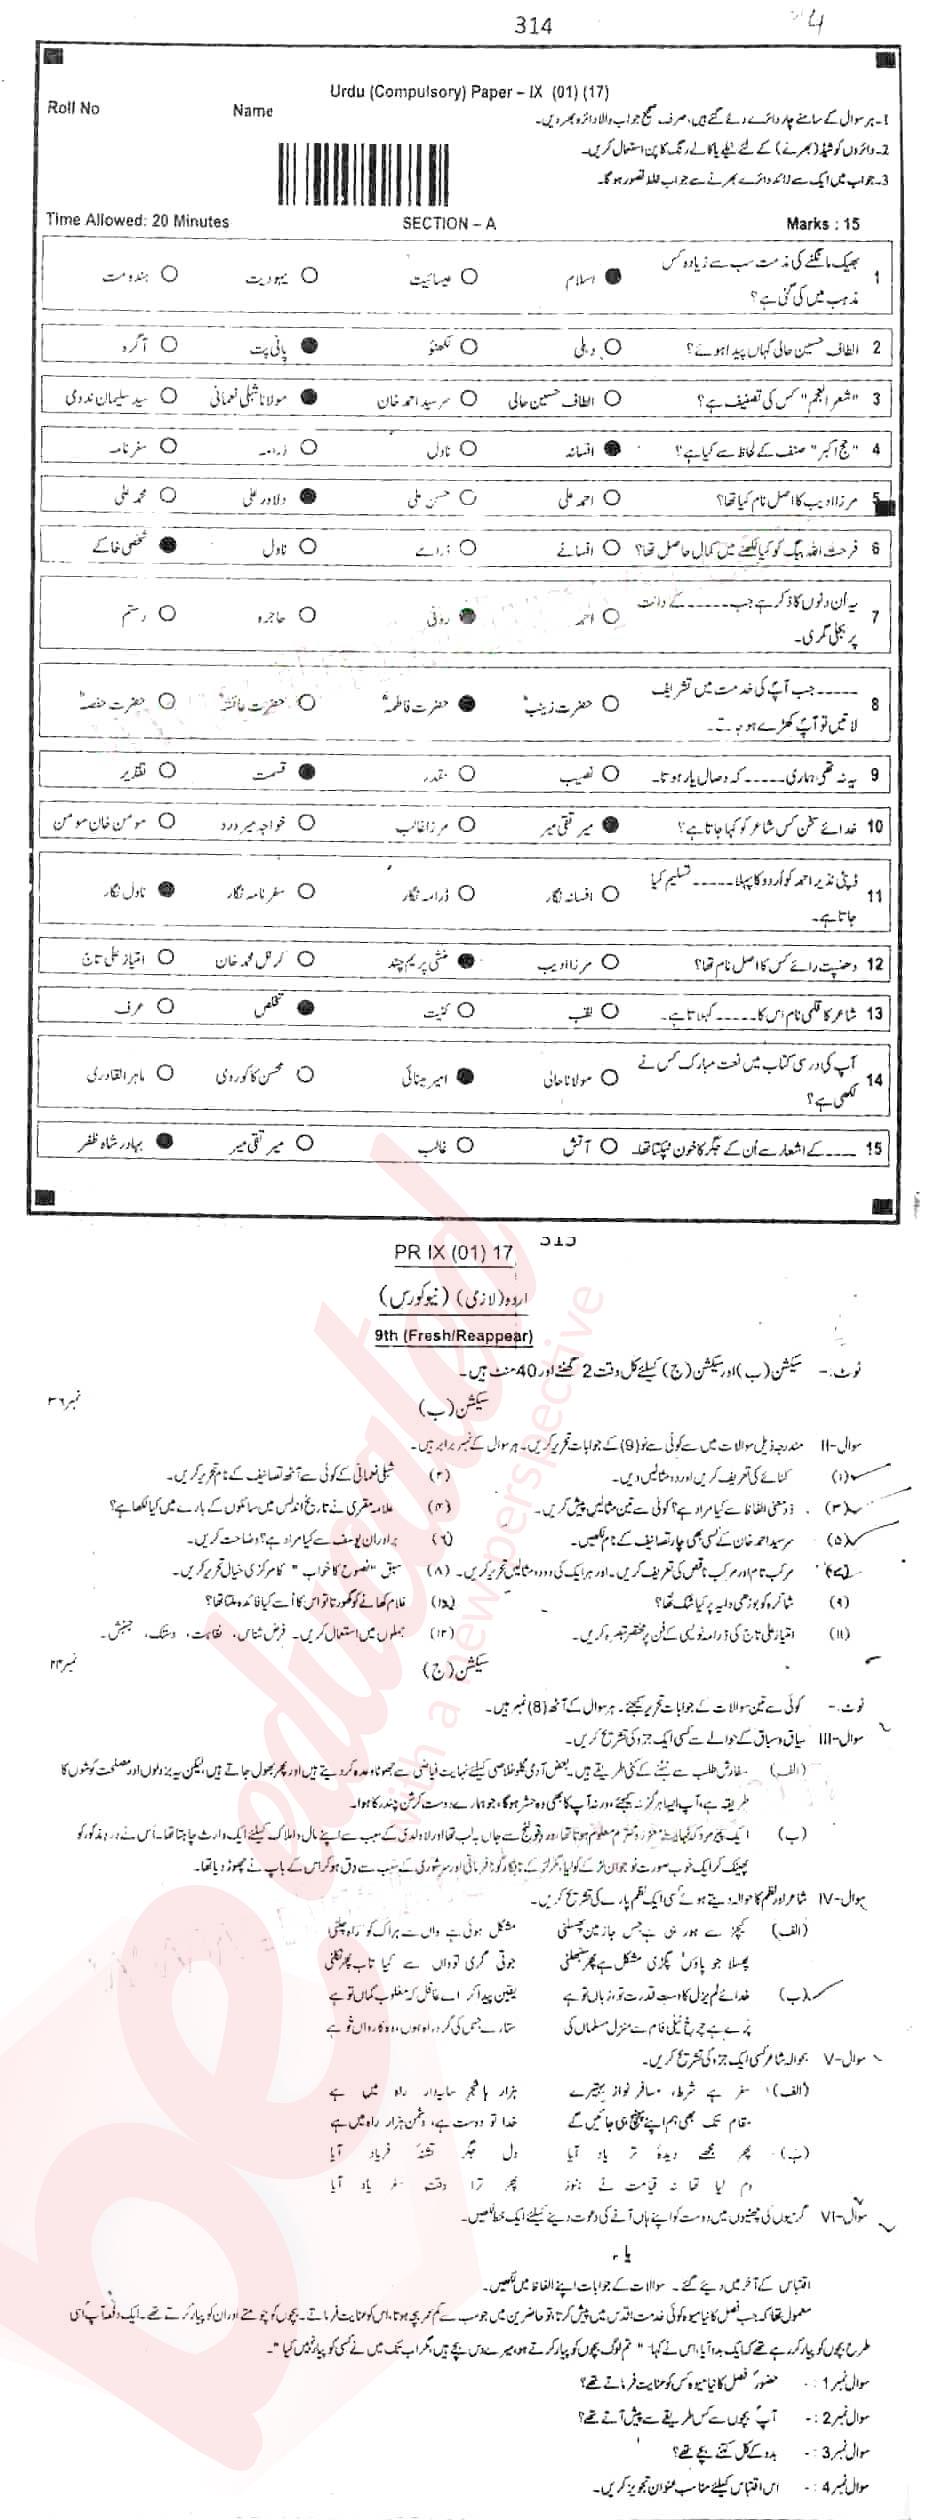 314
4
Urdu (Compulsory) Paper – IX (01) (17)
Roll No Name
1۔ ہر سوال کے سامنے چار دائرے دئے گئے ہیں، صرف صحیح جواب والا دائرہ بھر دیں۔
2۔ دائروں کو شیڈ (بھرنے) کے لئے نیلے یا کالے رنگ کا پن استعمال کریں۔
3۔ جواب میں ایک سے زائد دائرے بھرنے سے جواب غلط تصور ہوگا۔
Time Allowed: 20 Minutes SECTION – A Marks : 15
1 بھیک مانگنے کی مذمت سب سے زیادہ کس
مذہب میں کی گئی ہے؟
اسلام عیسائیت یہودیت ہندومت
2 الطاف حسین حالی کہاں پیدا ہوئے؟ دہلی لکھنؤ پانی پت آگرہ
3 "شعر العجم" کس کی تصنیف ہے؟ الطاف حسین حالی سرسید احمد خان مولانا شبلی نعمانی سید سلیمان ندوی
4 "حج اکبر" صنف کے لحاظ سے کیا ہے؟ افسانہ ناول ڈرامہ سفر نامہ
5 مرزا ادیب کا اصل نام کیا تھا؟ احمد علی حسن علی دلاور علی محمد علی
6 فرحت اللہ بیگ کو کیا لکھنے میں کمال حاصل تھا؟ افسانے ڈرامے ناول شخصی خاکے
7 یہ اُن دنوں کا ذکر ہے جب ۔۔۔۔۔ کے دانت
پر بجلی گری۔
احمد روفی حاجرہ رستم
8 ۔۔۔۔۔ جب آپؐ کی خدمت میں تشریف
لاتیں تو آپؐ کھڑے ہو جاتے۔
حضرت زینبؓ حضرت فاطمہؓ حضرت عائشہؓ حضرت حفصہؓ
9 یہ نہ تھی ہماری ۔۔۔۔۔ کہ وصال یار ہوتا۔ نصیب مقدر قسمت تقدیر
10 خدائے سخن کس شاعر کو کہا جاتا ہے؟ میر تقی میر مرزا غالب خواجہ میر درد مومن خان مومن
11 ڈپٹی نذیر احمد کو اُردو کا پہلا ۔۔۔۔۔ تسلیم کیا
جاتا ہے۔
افسانہ نگار ڈرامہ نگار سفرنامہ نگار ناول نگار
12 دھنپت رائے کس کا اصل نام تھا؟ مرزا ادیب منشی پریم چند کرنل محمد خان امتیاز علی تاج
13 شاعر کا قلمی نام اس کا ۔۔۔۔۔ کہلاتا ہے۔ لقب کنیت تخلص عرف
14 آپ کی درسی کتاب میں نعت مبارک کس نے
لکھی ہے؟
مولانا حالی امیر مینائی محسن کاکوروی ماہر القادری
15 ۔۔۔۔ کے اشعار سے اُن کے جگر کا خون ٹپکتا تھا۔ آتش غالب میر تقی میر بہادر شاہ ظفر
PR IX (01) 17
اردو (لازمی) (نیو کورس)
9th (Fresh/Reappear)
نوٹ۔ سیکشن (ب) اور سیکشن (ج) کیلئے کل وقت 2 گھنٹے اور 40 منٹ ہیں۔
سیکشن (ب) نمبر ۳۶
سوال-II مندرجہ ذیل سوالات میں سے کوئی سے نو (9) کے جوابات تحریر کریں۔ ہر سوال کے نمبر برابر ہیں۔
(۱) کنائے کی تعریف کریں اور دو مثالیں دیں۔ (۲) شبلی نعمانی کے کوئی سے آٹھ تصانیف کے نام تحریر کریں۔
(۳) ذو معنی الفاظ سے کیا مراد ہے؟ کوئی سے تین مثالیں پیش کریں۔ (۴) علامہ مقری نے تاریخ اندلس میں سائلوں کے بارے میں کیا لکھا ہے؟
(۵) سرسید احمد خان کے کسی بھی چار تصانیف کے نام لکھیں۔ (۶) برادران یوسف سے کیا مراد ہے؟ وضاحت کریں۔
(۷) مرکب تام اور مرکب ناقص کی تعریف کریں۔ اور ہر ایک کی دو دو مثالیں تحریر کریں۔ (۸) سبق "نصوح کا خواب" کا مرکزی خیال تحریر کریں۔
(۹) شاکرہ کو بوڑھی دایہ پر کیا شک تھا؟ (۱۰) غلام کھانے کو گھورتا تو اس کا اُسے کیا فائدہ ملتا تھا؟
(۱۱) امتیاز علی تاج کی ڈرامہ نویسی کے فن پر مختصر تبصرہ کریں۔ (۱۲) جملوں میں استعمال کریں۔ فرض شناس، نقاہت، دستک، جنبش۔
سیکشن (ج) نمبر ۲۴
نوٹ۔ کوئی سے تین سوالات کے جوابات تحریر کیجئے۔ ہر سوال کے آٹھ (8) نمبر ہیں۔
سوال-III سیاق و سباق کے حوالے سے کسی ایک جزو کی تشریح کریں۔
(الف) سفارش طلب سے نپٹنے کے کئی طریقے ہیں۔ بعض آدمی گلو خلاصی کیلئے نہایت فیاضی سے جھوٹا وعدہ کر دیتے ہیں اور پھر بھول جاتے ہیں، لیکن یہ بزدلوں اور مصلحت کوشوں کا
طریقہ ہے، آپ ایسا ہرگز نہ کیجئے، ورنہ آپ کا بھی وہ حشر ہوگا، جو ہمارے دوست کرشن چندر کا ہوا۔
(ب) ایک پیر مرد کہ نہایت معزز و محترم معلوم ہوتا تھا، درد قولنج سے جاں بہ لب تھا اور لاولدی کے سبب سے اپنے مال و املاک کیلئے ایک وارث چاہتا تھا۔ اُس نے درد مذکور کو
پھینک کر ایک خوب صورت نوجوان لڑکے کو لیا، مگر لڑکے نابکار کو نافرمانی اور سرشوری کے سبب سے دق ہو کر اس کے باپ نے چھوڑ دیا تھا۔
سوال-IV شاعر اور نظم کا حوالہ دیتے ہوئے کسی ایک نظم پارے کی تشریح کریں۔
(الف) کیچڑ سے ہو رہی ہے جس جا زمین پھسلنی مشکل ہوئی ہے واں سے ہر اک کو راہ چلنی
پھسلا جو پاؤں پگڑی مشکل ہے پھر سنبھلنی جوتی گری تو واں سے کیا تاب پھر نکلنی
(ب) خدائے لم یزل کا دستِ قدرت تو، زباں تو ہے یقین پیدا کر اے غافل کہ مغلوب گماں تو ہے
پرے ہے چرخ نیلی فام سے منزل مسلماں کی ستارے جس کی گرد راہ ہوں، وہ کارواں تو ہے
سوال-V بحوالہ شاعر کسی ایک جزو کی تشریح کریں۔
(الف) سفر ہے شرط، مسافر نواز بہتیرے ہزار ہا شجر سایہ دار راہ میں ہے
مقام تک بھی ہم اپنے پہنچ ہی جائیں گے خدا تو دوست ہے، دشمن ہزار راہ میں ہے
(ب) پھر مجھے دیدۂ تر یاد آیا دل جگر تشنۂ فریاد آیا
دم لیا تھا نہ قیامت نے ہنوز پھر ترا وقت سفر یاد آیا
سوال-VI گرمیوں کی چھٹیوں میں دوست کو اپنے ہاں آنے کی دعوت دینے کیلئے ایک خط لکھیں۔
یا
اقتباس کے آخر میں دیئے گئے۔ سوالات کے جوابات اپنے الفاظ میں لکھیں۔
معمول تھا کہ جب فصل کا نیا میوہ کوئی خدمت اقدس میں پیش کرتا، تو حاضرین میں جو سب سے کم عمر بچہ ہوتا، اس کو عنایت فرماتے۔ بچوں کو چومتے اور ان کو پیار کرتے تھے۔ ایک دفعہ آپؐ اسی
طرح بچوں کو پیار کر رہے تھے کہ ایک بدو آیا، اس نے کہا "تم لوگ بچوں کو پیار کرتے ہو، میرے دس بچے ہیں، مگر اب تک میں نے کسی کو پیار نہیں کیا"۔
سوال نمبر 1 :- حضورؐ فصل کا نیا میوہ کس کو عنایت فرماتے تھے؟
سوال نمبر 2 :- آپؐ بچوں سے کس طریقے سے پیش آتے تھے؟
سوال نمبر 3 :- بدو کے کل کتنے بچے تھے؟
سوال نمبر 4 :- اس اقتباس کیلئے مناسب عنوان تجویز کریں۔
beeducated
with a new perspective